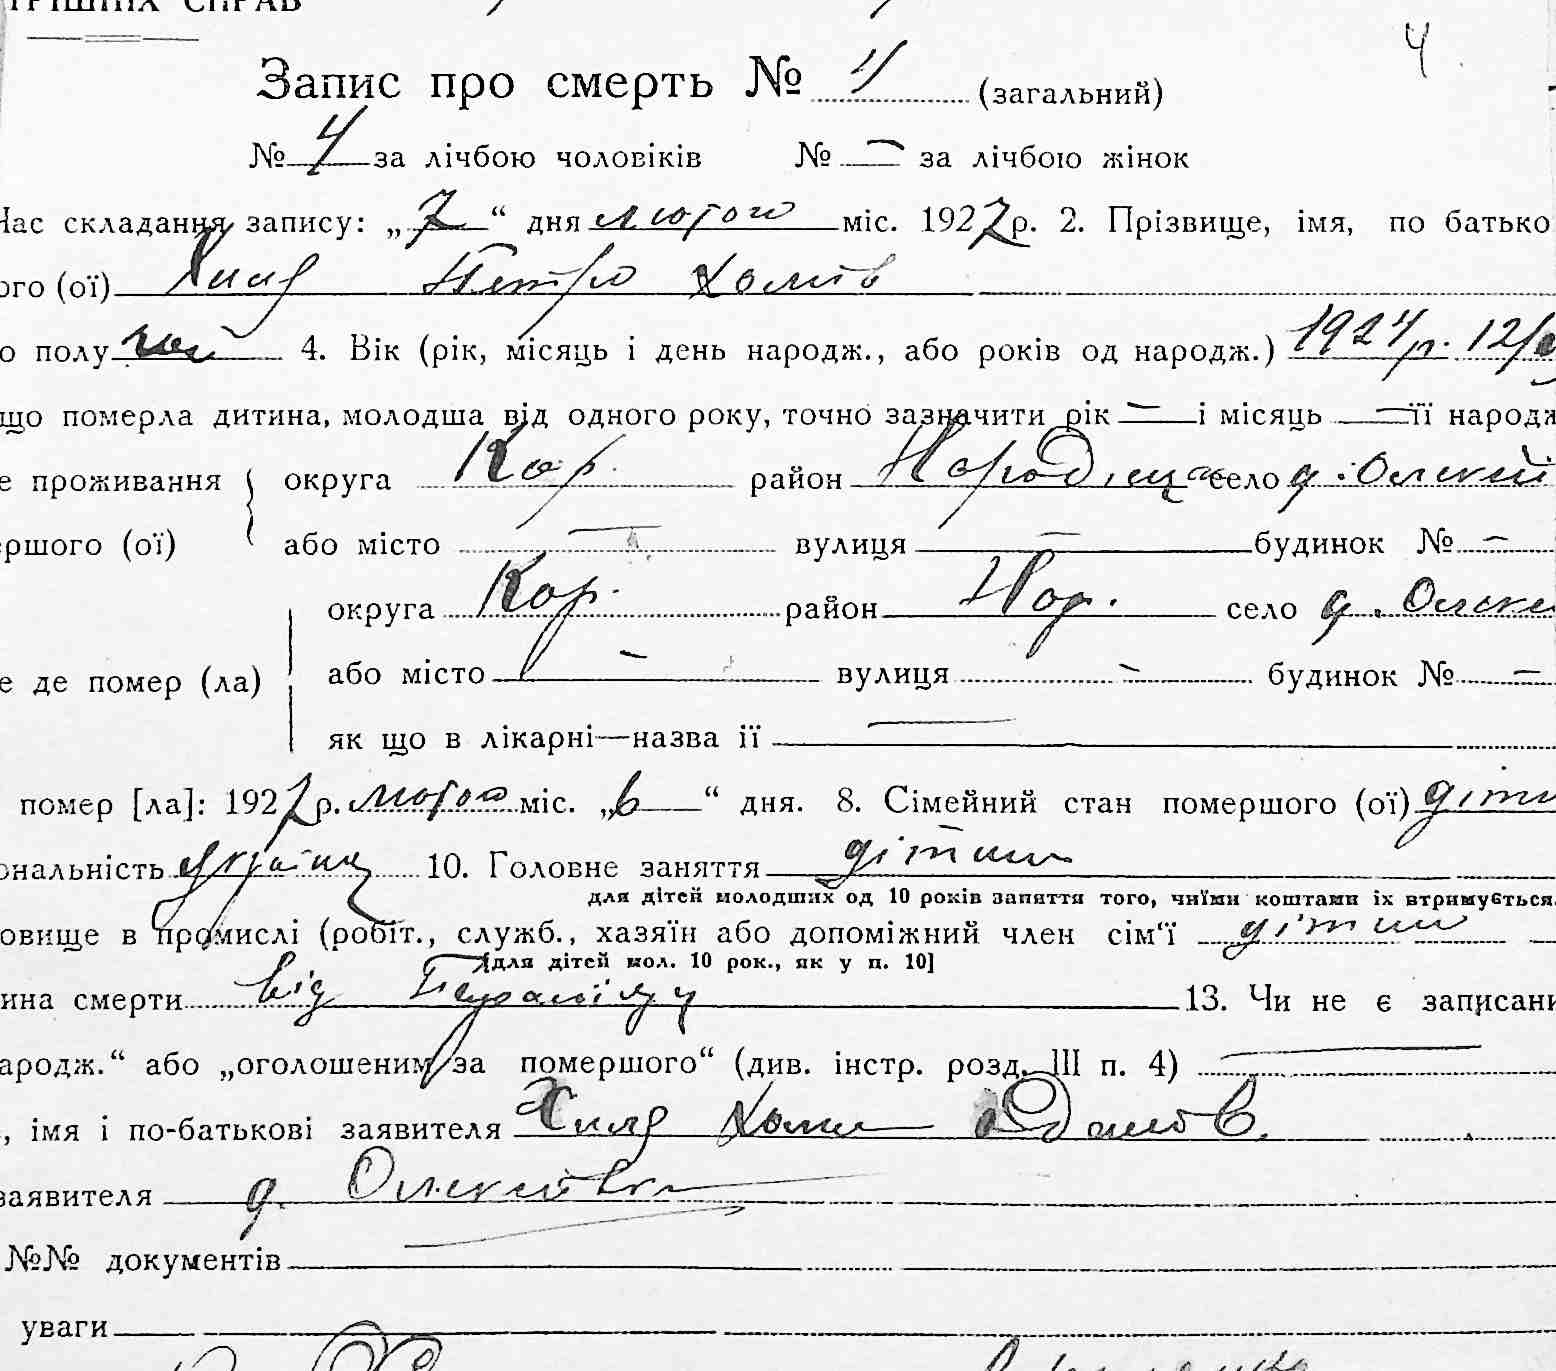 ТРІШНІХ СПРАВ
4
Запис про смерть № 4 (загальний)
№ 4 за лічбою чоловіків № — за лічбою жінок
Час складання запису: „7“ дня лютого міс. 1927 р. 2. Прізвище, імя, по батько
ого (ої) Хиля Петро Хомів
о полу чол 4. Вік (рік, місяць і день народж., або років од народж.) 1924 р. 12/
що померла дитина, молодша від одного року, точно зазначити рік — і місяць — її народж
е проживання округа Кор. район Народицьк село д. Олексії
ершого (ої) або місто — вулиця — будинок № —
округа Кор. район Нар. село д. Олексі
е де помер (ла) або місто — вулиця — будинок № —
як що в лікарні—назва її —
помер [ла]: 1927 р. лютого міс. „6“ дня. 8. Сімейний стан помершого (ої) дітин
ональність україн 10. Головне заняття дітина
для дітей молодших од 10 років заняття того, чиїми коштами їх втримується.
овище в промислі (робіт., служб., хазяїн або допоміжний член сім‘ї дітин
[для дітей мол. 10 рок., як у п. 10]
ина смерти від 13. Чи не є записани
ародж.“ або „оголошеним за помершого“ (див. інстр. розд. III п. 4) —
, імя і по-батькові заявителя Хиля Хома Адамов.
заявителя д. Олексіівка
№№ документів
уваги